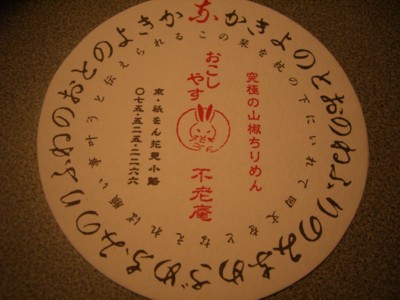 なかきよのとおのねふりのみなめざめなみのりふねのおとのよきか
この を枕の下にいれて回文をとなえれば願い事叶うと伝えられる
究極の山椒ちりめん
おこし
やす
不老庵
京・祇をん花見小路
〇七五・五二五・二二六六